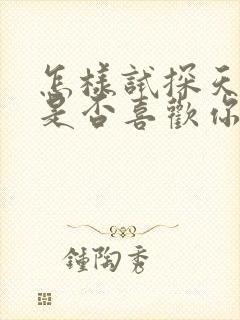 怎樣試探天
是否喜歡你
鍾陶秀